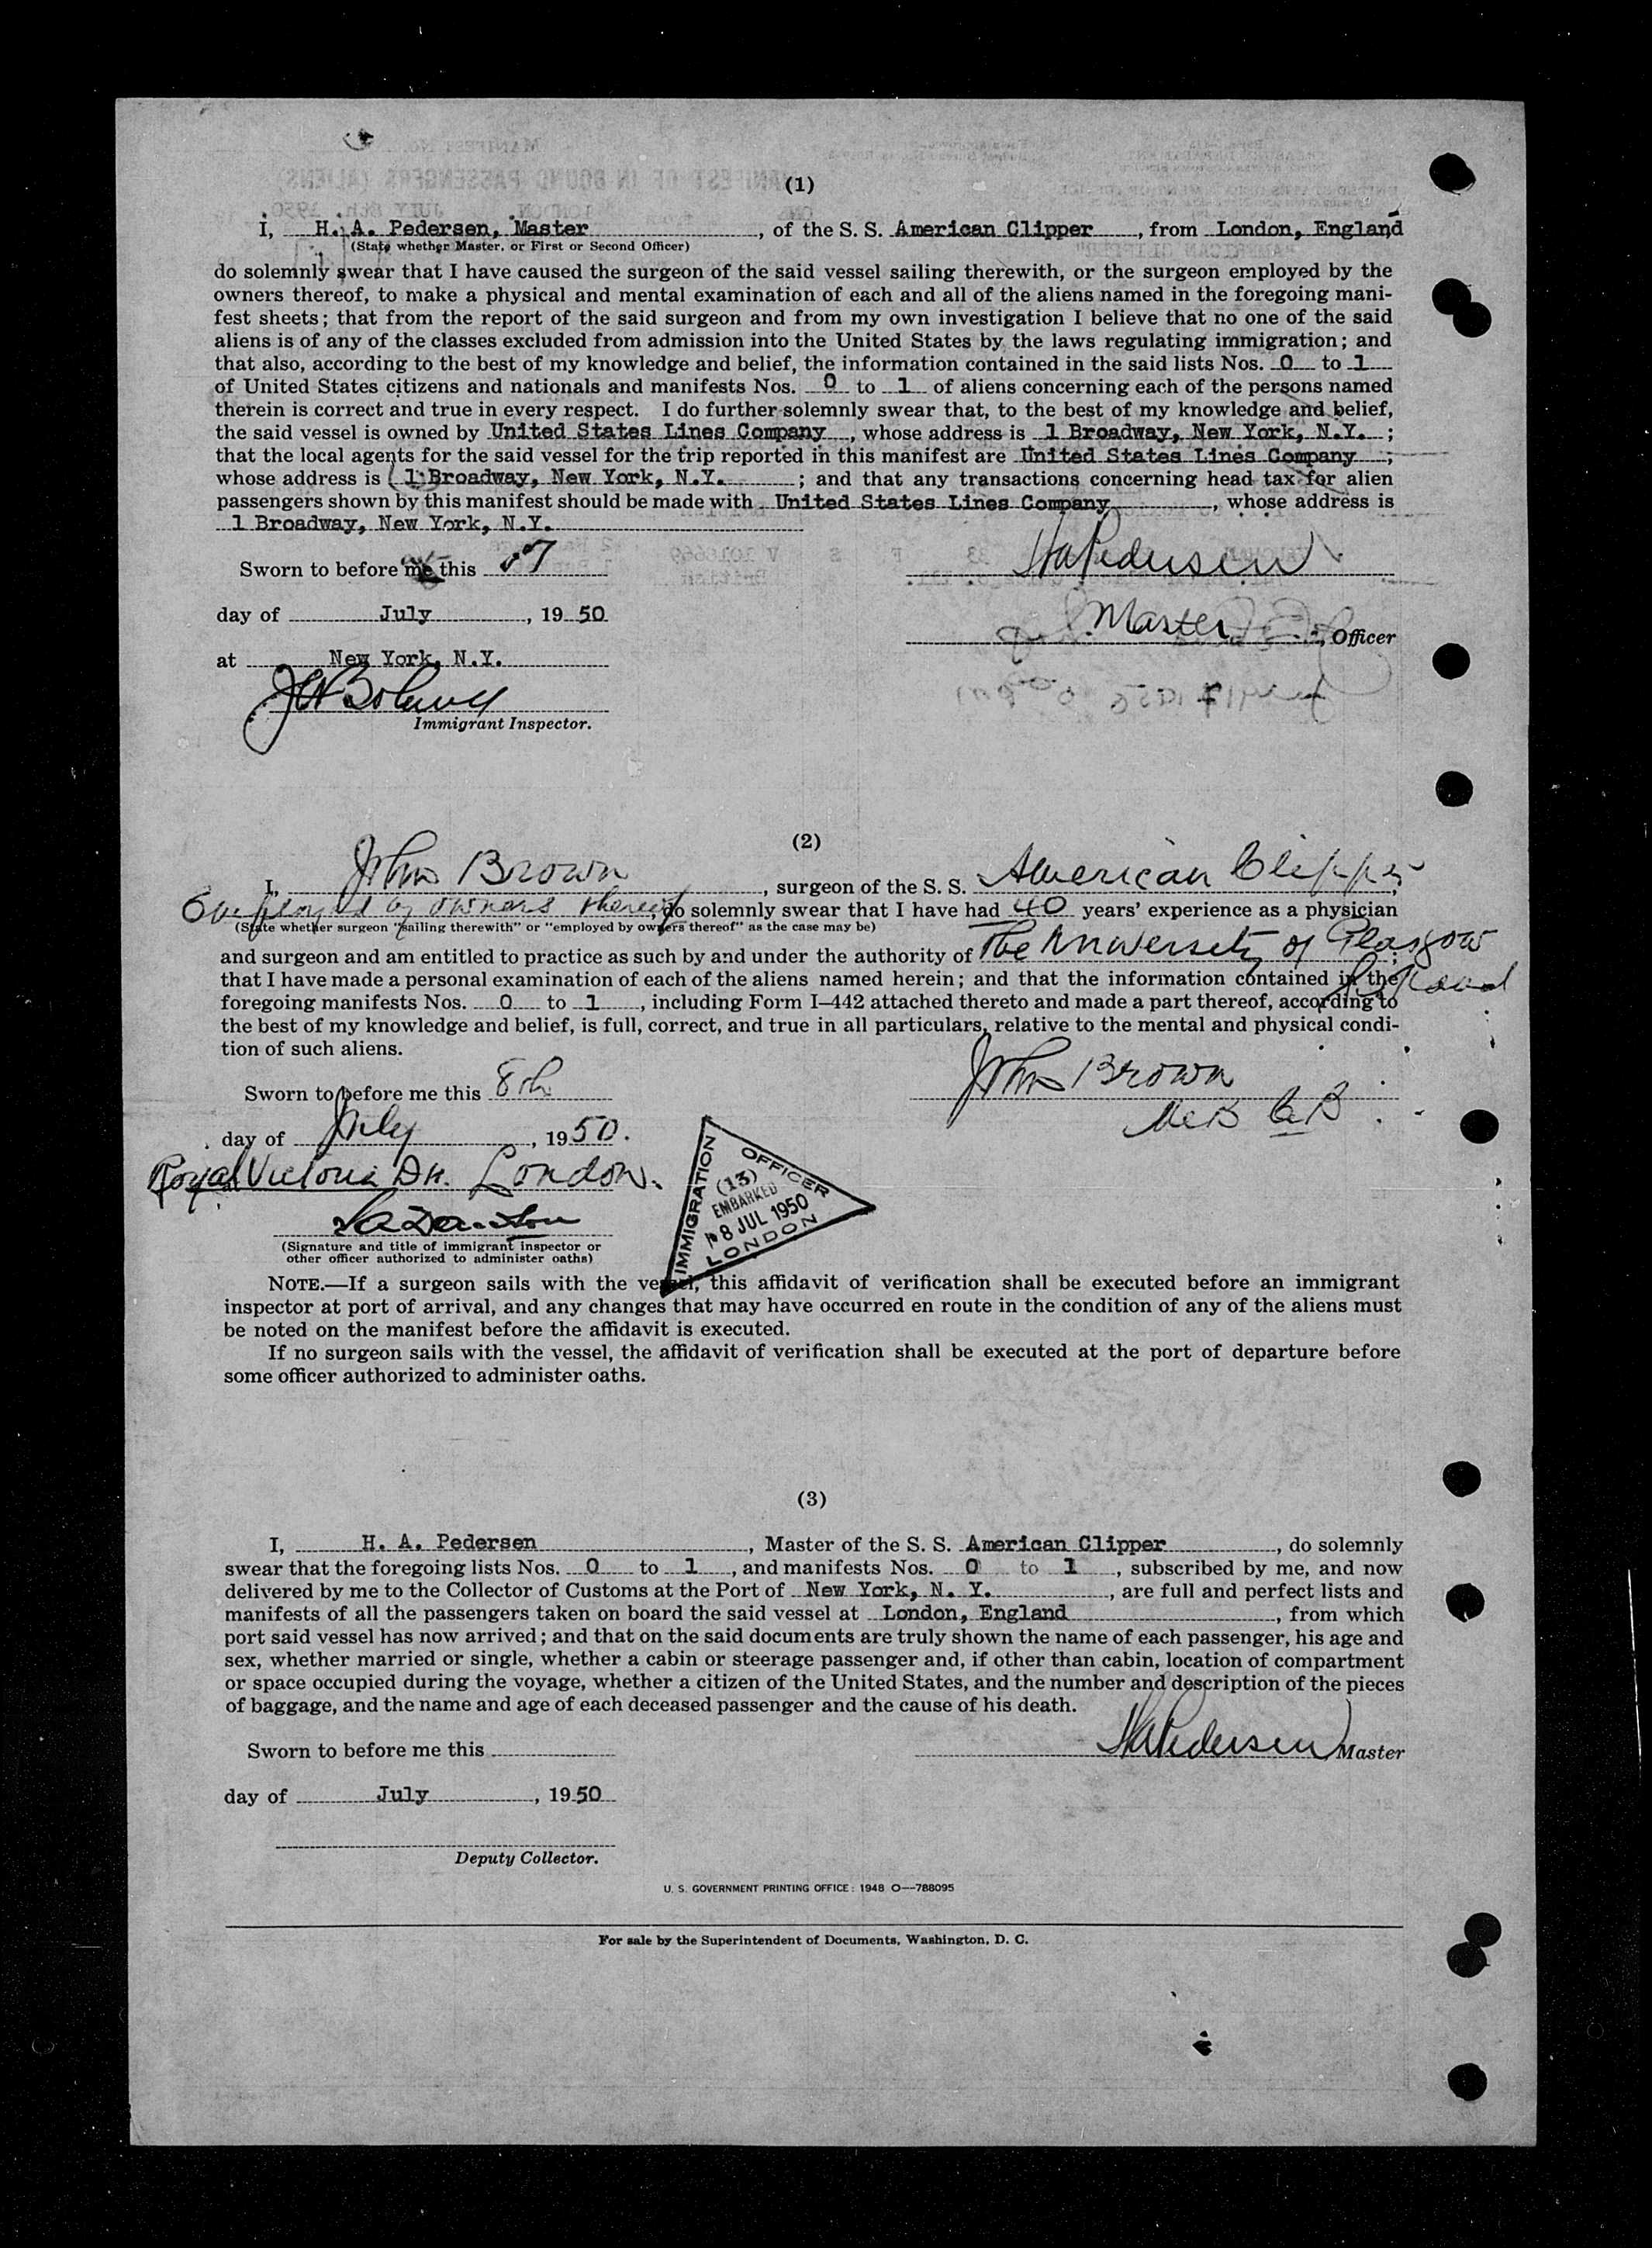 (1)
I, H. A. Pedersen, Master, of the S. S. American Clipper, from London, England
(State whether Master, or First or Second Officer)
do solemnly swear that I have caused the surgeon of the said vessel sailing therewith, or the surgeon employed by the
owners thereof, to make a physical and mental examination of each and all of the aliens named in the foregoing mani-
fest sheets; that from the report of the said surgeon and from my own investigation I believe that no one of the said
aliens is of any of the classes excluded from admission into the United States by the laws regulating immigration; and
that also, according to the best of my knowledge and belief, the information contained in the said lists Nos. 0 to 1
of United States citizens and nationals and manifests Nos. 0 to 1 of aliens concerning each of the persons named
therein is correct and true in every respect. I do further solemnly swear that, to the best of my knowledge and belief,
the said vessel is owned by United States Lines Company, whose address is 1 Broadway, New York, N.Y. ;
that the local agents for the said vessel for the trip reported in this manifest are United States Lines Company ;
whose address is 1 Broadway, New York, N.Y. ; and that any transactions concerning head tax for alien
passengers shown by this manifest should be made with United States Lines Company, whose address is
1 Broadway, New York, N.Y.
HAPedersen
Sworn to before me this 17
day of July, 1950
Master, Officer
at New York, N.Y.
Immigrant Inspector.
(2)
I, John Brown, surgeon of the S. S. American Clipper,
Employed by owners thereof, do solemnly swear that I have had 40 years' experience as a physician
(State whether surgeon "sailing therewith" or "employed by owners thereof" as the case may be)
and surgeon and am entitled to practice as such by and under the authority of The University of Glasgow ;
Scotland
that I have made a personal examination of each of the aliens named herein; and that the information contained in the
foregoing manifests Nos. 0 to 1, including Form I–442 attached thereto and made a part thereof, according to
the best of my knowledge and belief, is full, correct, and true in all particulars, relative to the mental and physical condi-
tion of such aliens.
John Brown
Sworn to before me this 8th
M.B. Ch.B.
day of July, 1950.
Royal Victoria Dk. London.
IMMIGRATION OFFICER
(13)
EMBARKED
8 JUL 1950
LONDON
(Signature and title of immigrant inspector or
other officer authorized to administer oaths)
NOTE.—If a surgeon sails with the vessel, this affidavit of verification shall be executed before an immigrant
inspector at port of arrival, and any changes that may have occurred en route in the condition of any of the aliens must
be noted on the manifest before the affidavit is executed.
If no surgeon sails with the vessel, the affidavit of verification shall be executed at the port of departure before
some officer authorized to administer oaths.
(3)
I, H. A. Pedersen, Master of the S. S. American Clipper, do solemnly
swear that the foregoing lists Nos. 0 to 1, and manifests Nos. 0 to 1, subscribed by me, and now
delivered by me to the Collector of Customs at the Port of New York, N. Y., are full and perfect lists and
manifests of all the passengers taken on board the said vessel at London, England, from which
port said vessel has now arrived; and that on the said documents are truly shown the name of each passenger, his age and
sex, whether married or single, whether a cabin or steerage passenger and, if other than cabin, location of compartment
or space occupied during the voyage, whether a citizen of the United States, and the number and description of the pieces
of baggage, and the name and age of each deceased passenger and the cause of his death.
HAPedersen Master
Sworn to before me this
day of July, 1950
Deputy Collector.
U. S. GOVERNMENT PRINTING OFFICE: 1948 O—788095
For sale by the Superintendent of Documents, Washington, D. C.